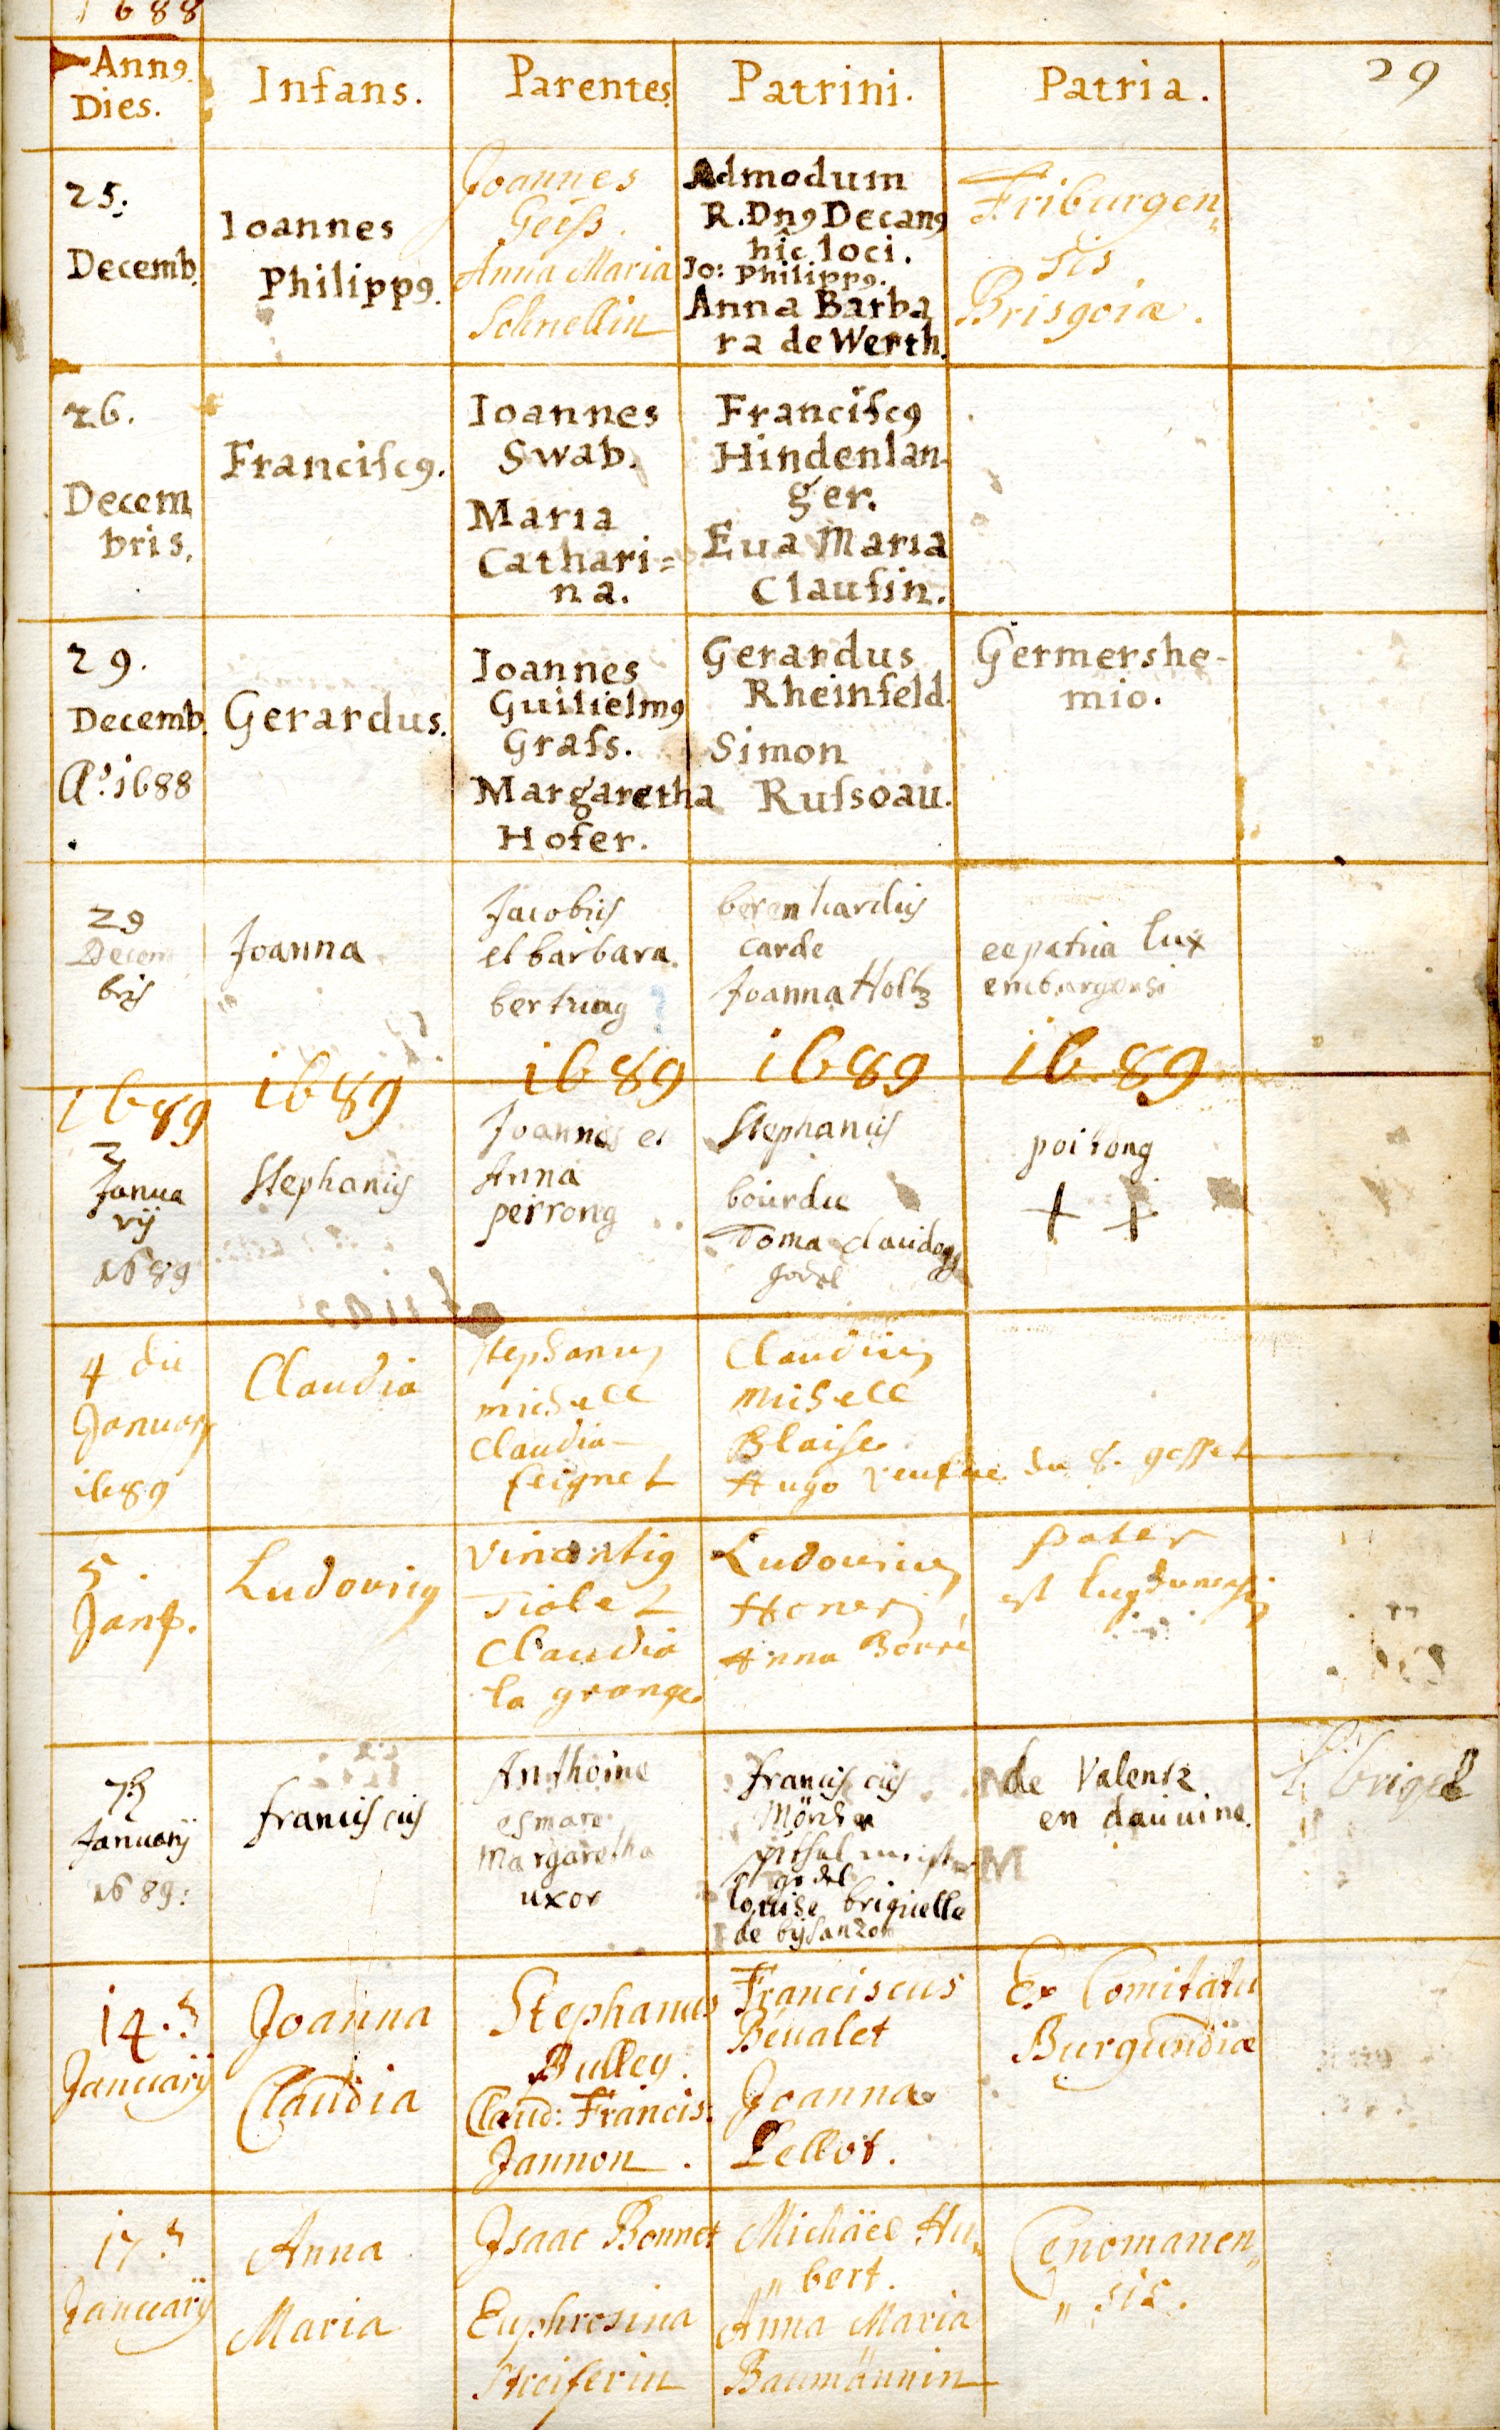 1688
Annꝰ. Dies.
Infans.
Parentes.
Patrini.
Patria.
29
25.
Decemb.
Ioannes
Philippꝰ.
Joannes
Geiss.
Anna Maria
Schnellin
Admodum
R. Dnꝰ Decanꝰ
hîc loci.
Jo: Philippꝰ.
Anna Barba
ra de Werth.
Friburgen„
sis
Brisgoiæ.
26.
Decem
bris.
Franciſcꝰ.
Ioannes
Swab.
Maria
Cathari=
na.
Franciſcꝰ
Hindenlan-
ger.
Eua Maria
Clauſin.
29.
Decemb.
Aº. 1688
Gerardus.
Ioannes
Guilielmꝰ
Graſs.
Margaretha
Hofer.
Gerardus
Rheinfeld.
Simon
Ruſsoau.
Germershe-
mio.
29
Decem
bris
Joanna
Jacobus
et barbara.
bertrung
berenhardus
carde
Joanna Holtz
ee patria lux
emburgensi
1689
1689
1689
1689
1689
3
Janua
rij
1689
Stephanus
Joannes et
Anna
perrong
Stephanus
bourdu
Toma
godel
poitong
+ +
4 du
January
1689
Claudia
Stephanus
michell
Claudia
feignet
Claudius
michell
Blaise
Hugo veufue du s. gosset
5
Ludovicꝰ
Vincentiꝰ
Tiolet
Claudia
la grange
Ludovicus
Henery
Anna Borré
pater
est lugdunensis
7ᵗ
Januarij
1689:
franciscus
Anthoine
esmare
Margaretha
uxor
franciscus
godel
louise briquelle
de bysanzon
de Valense
en dauuine.
14.ᵗ
Januarij
Joanna
Claudia
Stephanus
Bulley.
Claud: Francis:
Jannon.
Franciscus
Béualet
Joanna
Pellot.
Ex Comitatu
Burgundiæ
17.ᵗ
Januarij
Anna
Maria
Isaac Bonnet
Euphrosina
Streiferin
Michäel Hu„
„bert.
Anna Maria
Baumännin
Cenomanen„
„sis.